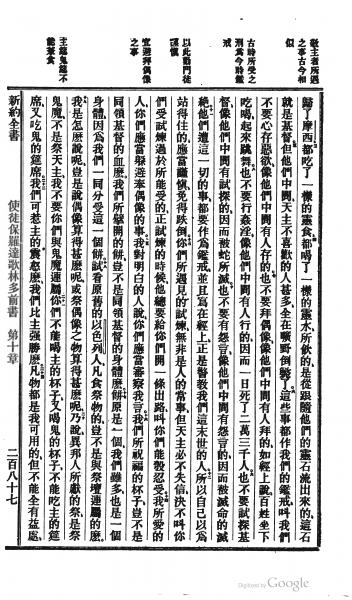 敬主者所遇
之事古今相
似
古時所受之
刑爲今時鑑
戒
以此勸門徒
謹愼
宜避拜偶像
之事
主筵鬼筵不
能兼食
歸了摩西都吃了一樣的靈食都喝了一樣的靈水所飲的是從跟隨他們的靈石流出來的這石
就是基督但他們中間天主不喜歡的人甚多全在曠野倒斃了這些事都作我們的鑑戒叫我們
不要心存惡欲像他們中間有人存的也不要拜偶像像他們中間有人拜的如經上說百姓坐下
吃喝起來跳舞也不要行姦淫像他們中間有人行的因而一日死了二萬三千人也不要試探基
督像他們中間有試探的因而被蛇所滅也不要有怨言像他們中間有怨言的因而被滅命的滅
絶他們遭這一切的事都要作爲鑑戒並且寫在經上正是警教我們這末世的人所以自己以爲
站得住的應當謹愼免得跌倒你們所遇見的試煉無非是人的常事但天主必不失信決不叫你
們受試煉過於所能受的正試煉的時候他總要給你們開一條出路叫你們能彀忍受我所愛的
人你們應當躱避奉偶像的事我對明白的人說你們應當審察我言我們所祝福的杯子豈不是
同領基督的血麽我們所擘開的餅豈不是同領基督的身體麽餅原是一個我們雖多也是一個
身體因爲我們一同分受這一個餅試看原舊的以色列人凡食祭物的豈不是與祭壇連屬的麽
我是怎麽說呢豈是說偶像算得甚麽呢或祭偶像之物算得甚麽呢乃說異邦人所獻的祭是祭
鬼魔不是祭天主我不要你們與鬼魔連屬你們不能喝主的杯子又喝鬼的杯子不能吃主的筵
席又吃鬼的筵席我們可惹主的震怒麽我們比主强勝麽凡物都是我可用的但不能全有益處
新約全書 使徒保羅達歌林多前書 第十章 二百八十七
Digitized by Google